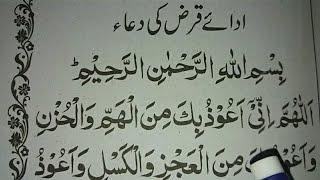 ادائے قرض کی دعاء
بِسْمِ اللهِ الرَّحْمٰنِ الرَّحِيْمِ ط
اَللّٰهُمَّ اِنِّىْ اَعُوْذُ بِكَ مِنَ الْهَمِّ وَالْحُزْنِ
مِنَ الْعَجْزِ وَالْكَسَلِ وَاَعُوْذُ